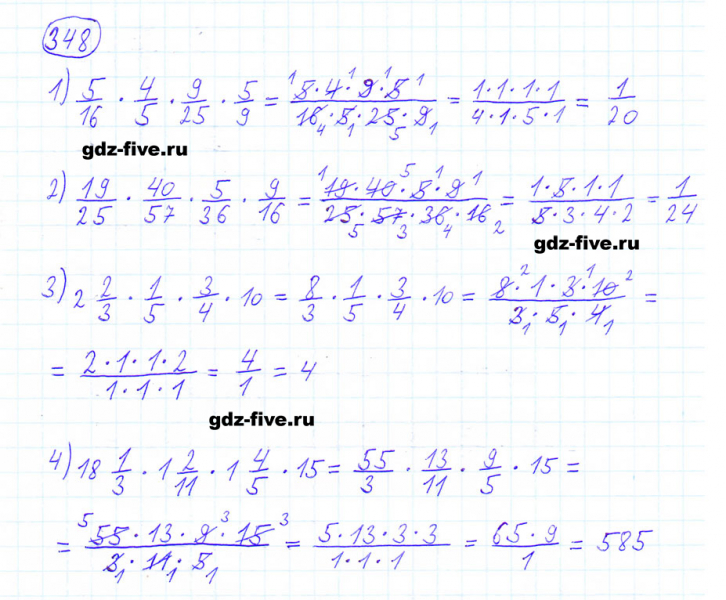 348
1) 5/16 · 4/5 · 9/25 · 5/9 = (5·4·9·5)/(16·5·25·9) = (1·1·1·1)/(4·1·5·1) = 1/20
gdz-five.ru
2) 19/25 · 40/57 · 5/36 · 9/16 = (19·40·5·9)/(25·57·36·16) = (1·5·1·1)/(5·3·4·2) = 1/24
gdz-five.ru
3) 2 2/3 · 1/5 · 3/4 · 10 = 8/3 · 1/5 · 3/4 · 10 = (8·1·3·10)/(3·5·4) =
= (2·1·1·2)/(1·1·1) = 4/1 = 4
gdz-five.ru
4) 18 1/3 · 1 2/11 · 1 4/5 · 15 = 55/3 · 13/11 · 9/5 · 15 =
= (55·13·9·15)/(3·11·5) = (5·13·3·3)/(1·1·1) = (65·9)/1 = 585